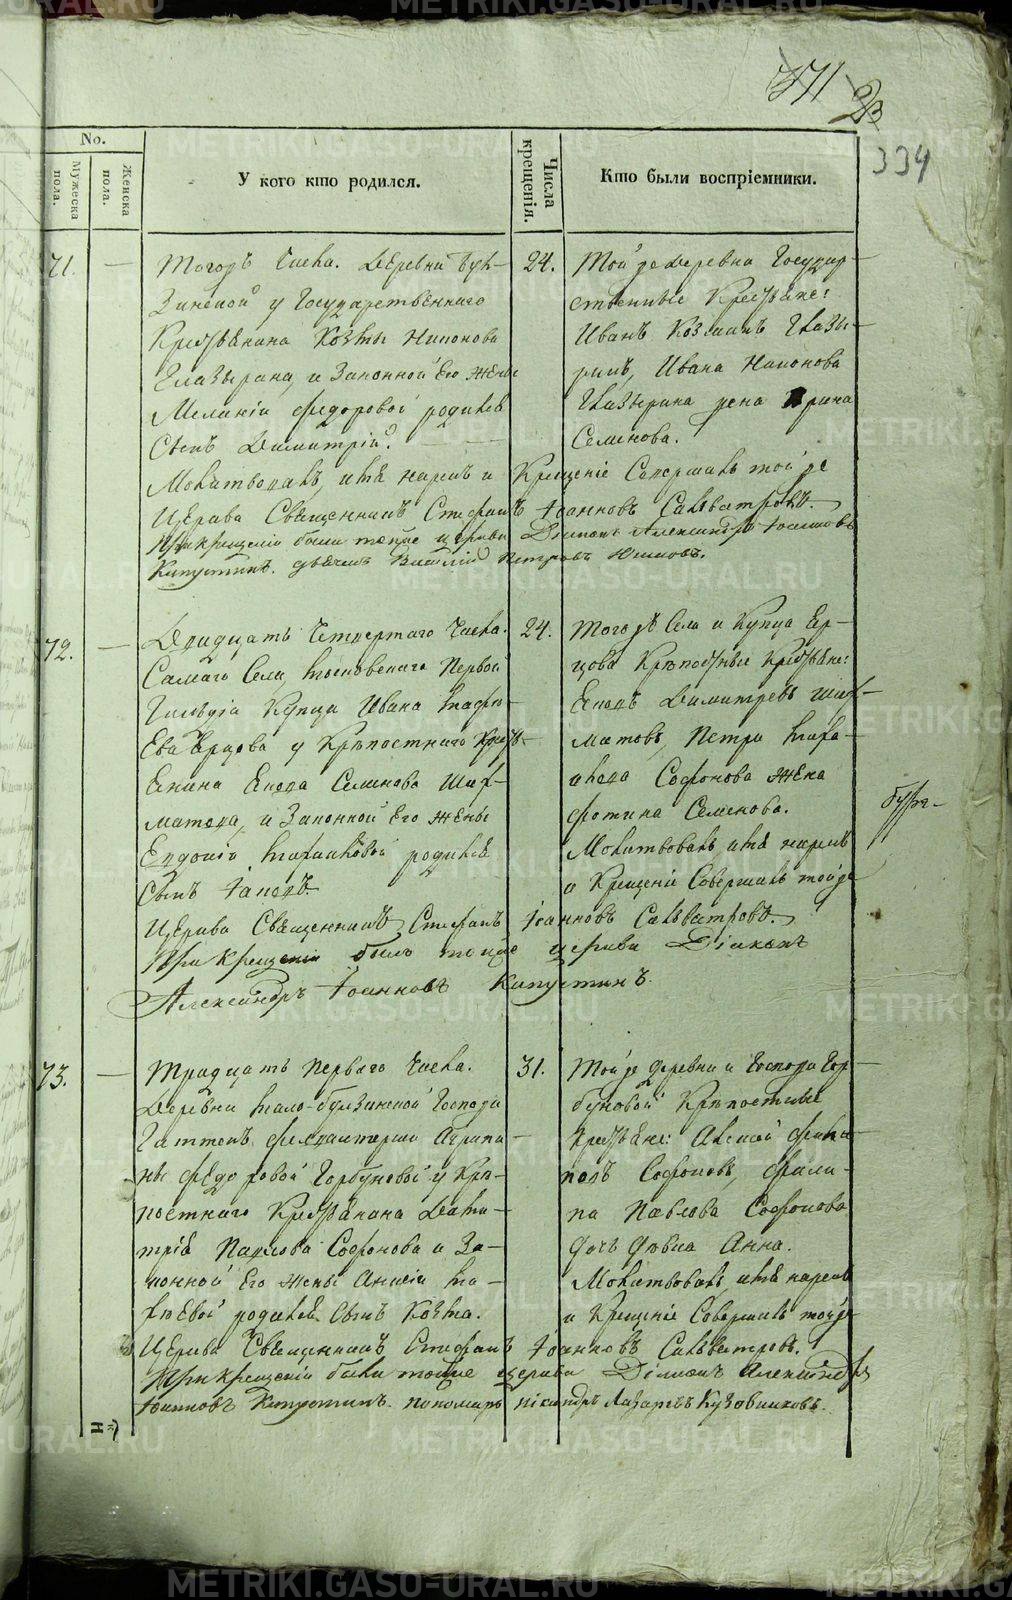 771 23
334
No.
Мужеска пола.
Женска пола.
У кого кто родился.
Числа крещенія.
Кто были воспріемники.
71. —
Тогожъ Числа. Деревни Бул-
зинской у Государственнаго
Крестьянина Козмы Никонова
Глазырина, и Законной Его жены
Меланіи Федоровой родился
Сынъ Димитрій.
24.
Той же деревни Государ-
ственные Крестьяне:
Иванъ Козминъ Глазы-
ринъ, Ивана Никонова
Глазырина жена Ирина
Семенова.
Молитвовалъ, имя нарекъ и Крещеніе Совершилъ той же
Церкви Священникъ Стефанъ Іоанновъ Сильвестровъ.
При крещеніи были тойже церкви Діаконъ Александръ Іоанновъ
Капустинъ. дьячекъ Василій Петровъ
72. —
Двадцать Четвертаго Числа.
Самаго Села, Первой
Гильдіи Купца Ивана
у Крѣпостнаго Кресть-
янина Семенова Шах-
матова, и Законной Его жены
Евдокіи родился
Сынъ Іаковъ.
24.
Тогожъ Села и Купца
Крѣпостные Крестьяне:
Димитревъ Шах-
матовъ, Петра
Софонова жена
Фотина Семенова.
Молитвовалъ, имя нарекъ
и Крещеніе Совершилъ тойже
Церкви Священникъ Стефанъ Іоанновъ Сильвестровъ.
При крещеніи былъ тойже церкви Діаконъ
Александръ Іоанновъ Капустинъ.
73. —
Тридцать Перваго Числа.
Деревни Мало-Булзинской Госпожи
Агрипи-
ны Федоровой Горбуновой у Крѣ-
постнаго Крестьянина Дими-
трія Павлова Софонова и За-
конной Его жены Анисіи Ма-
родился Сынъ Козма.
31.
Той же деревни и Госпожи Гор-
буновой Крѣпостные
Крестьяне:
Софоновъ, Фили-
па Павлова Софонова
дочь дѣвка Анна.
Молитвовалъ, имя нарекъ
и Крещеніе Совершилъ тойже
Церкви Священникъ Стефанъ Іоанновъ Сильвестровъ.
При крещеніи были тойже церкви Діаконъ Александръ
Іоанновъ Капустинъ. пономарь Никандръ Лазаревъ Кузовниковъ.
METRIKI.GASO-URAL.RU